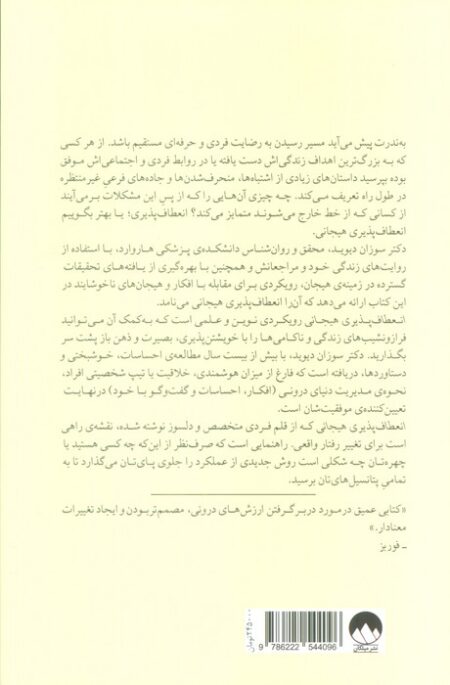 به‌ندرت پیش می‌آید مسیر رسیدن به رضایت فردی و حرفه‌ای مستقیم باشد. از هر کسی
که به بزرگ‌ترین اهداف زندگی‌اش دست یافته یا در روابط فردی و اجتماعی‌اش موفق
بوده بپرسید داستان‌های زیادی از اشتباه‌ها، منحرف‌شدن‌ها و جاده‌های فرعیِ غیرمنتظره
در طول راه تعریف می‌کند. چه چیزی آن‌هایی را که از پسِ این مشکلات برمی‌آیند
از کسانی که از خط خارج می‌شوند متمایز می‌کند؟ انعطاف‌پذیری؛ یا بهتر بگوییم
انعطاف‌پذیری هیجانی.
دکتر سوزان دیوید، محقق و روان‌شناس دانشکده‌ی پزشکی هاروارد، با استفاده از
روایت‌های زندگی خود و مراجعانش و همچنین با بهره‌گیری از یافته‌های تحقیقات
گسترده در زمینه‌ی هیجان، رویکردی برای مقابله با افکار و هیجان‌های ناخوشایند در
این کتاب ارائه می‌دهد که آن‌را انعطاف‌پذیری هیجانی می‌نامد.
انعطاف‌پذیری هیجانی رویکردی نوین و علمی است که به‌کمک آن می‌توانید
فرازونشیب‌های زندگی و ناکامی‌ها را با خویشتن‌پذیری، بصیرت و ذهن باز پشت سر
بگذارید. دکتر سوزان دیوید، با بیش از بیست سال مطالعه‌ی احساسات، خوشبختی و
دستاوردها، دریافته است که فارغ از میزان هوشمندی، خلاقیت یا تیپ شخصیتی افراد،
نحوه‌ی مدیریت دنیای درونی (افکار، احساسات و گفت‌وگو با خود) درنهایت
تعیین‌کننده‌ی موفقیت‌شان است.
انعطاف‌پذیری هیجانی که از قلم فردی متخصص و دلسوز نوشته شده، نقشه‌ی راهی
است برای تغییر رفتار واقعی. راهنمایی است که صرف‌نظر از این‌که چه کسی هستید یا
چهره‌تان چه شکلی است روش جدیدی از عملکرد را جلوی پای‌تان می‌گذارد تا به
تمامیِ پتانسیل‌های‌تان برسید.
«کتابی عمیق درمورد دربرگرفتن ارزش‌های درونی، مصمم‌تربودن و ایجاد تغییرات
معنادار.»
ـ فوربز
۲۴۵۰۰۰ تومان
9 786222 544096
نشر میلکان